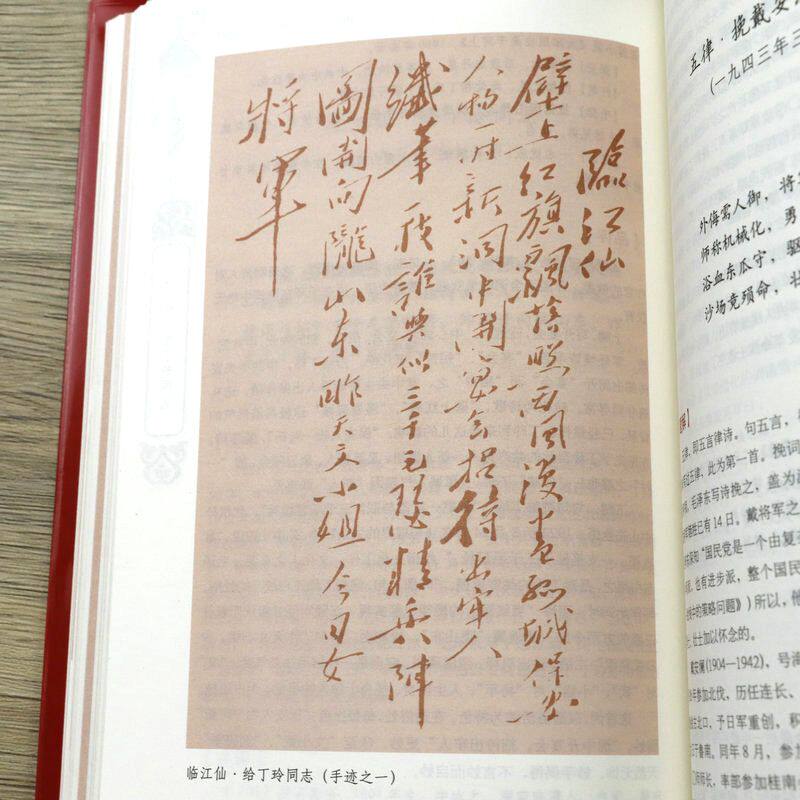 臨江仙
壁上红旗飄落照西風漫卷孤城保安
人物一时新洞中開宴会招待出牢人
纖筆一枝誰與似三千毛瑟精兵陣
圖開向隴山東昨天文小姐今日女
將軍
临江仙·给丁玲同志（手迹之一）
五律·挽戴安
（一九四三年三
外侮需人御，将
师称机械化，勇
浴血东瓜守，驱
沙场竟殒命，壮
律，即五言律诗。句五言，
五律，此为第一首。挽词
毛泽东写诗挽之，盖为
牺牲已有14日。戴将军之
知“国民党是一个由复杂
，也有进步派，整个国民
中的策略问题》）所以，他
壮士加以怀念的。
戴安澜（1904—1942），号海
参加北伐，历任连长、
古北口，予日军重创，积
于鲁南。同年8月，参
师长，率部参加桂南